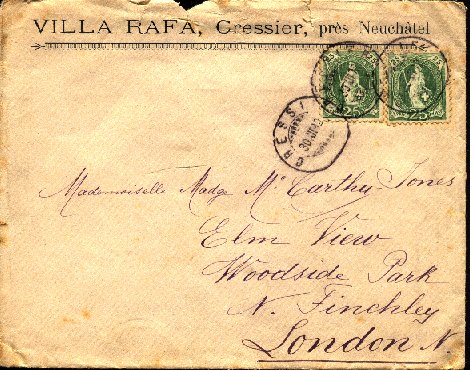 VILLA RAFA, Cressier, près Neuchâtel
25 25
CRESSI
Mademoiselle Madge Mc Carthy Jones
Elm View
Woodside Park
N. Finchley
London N.